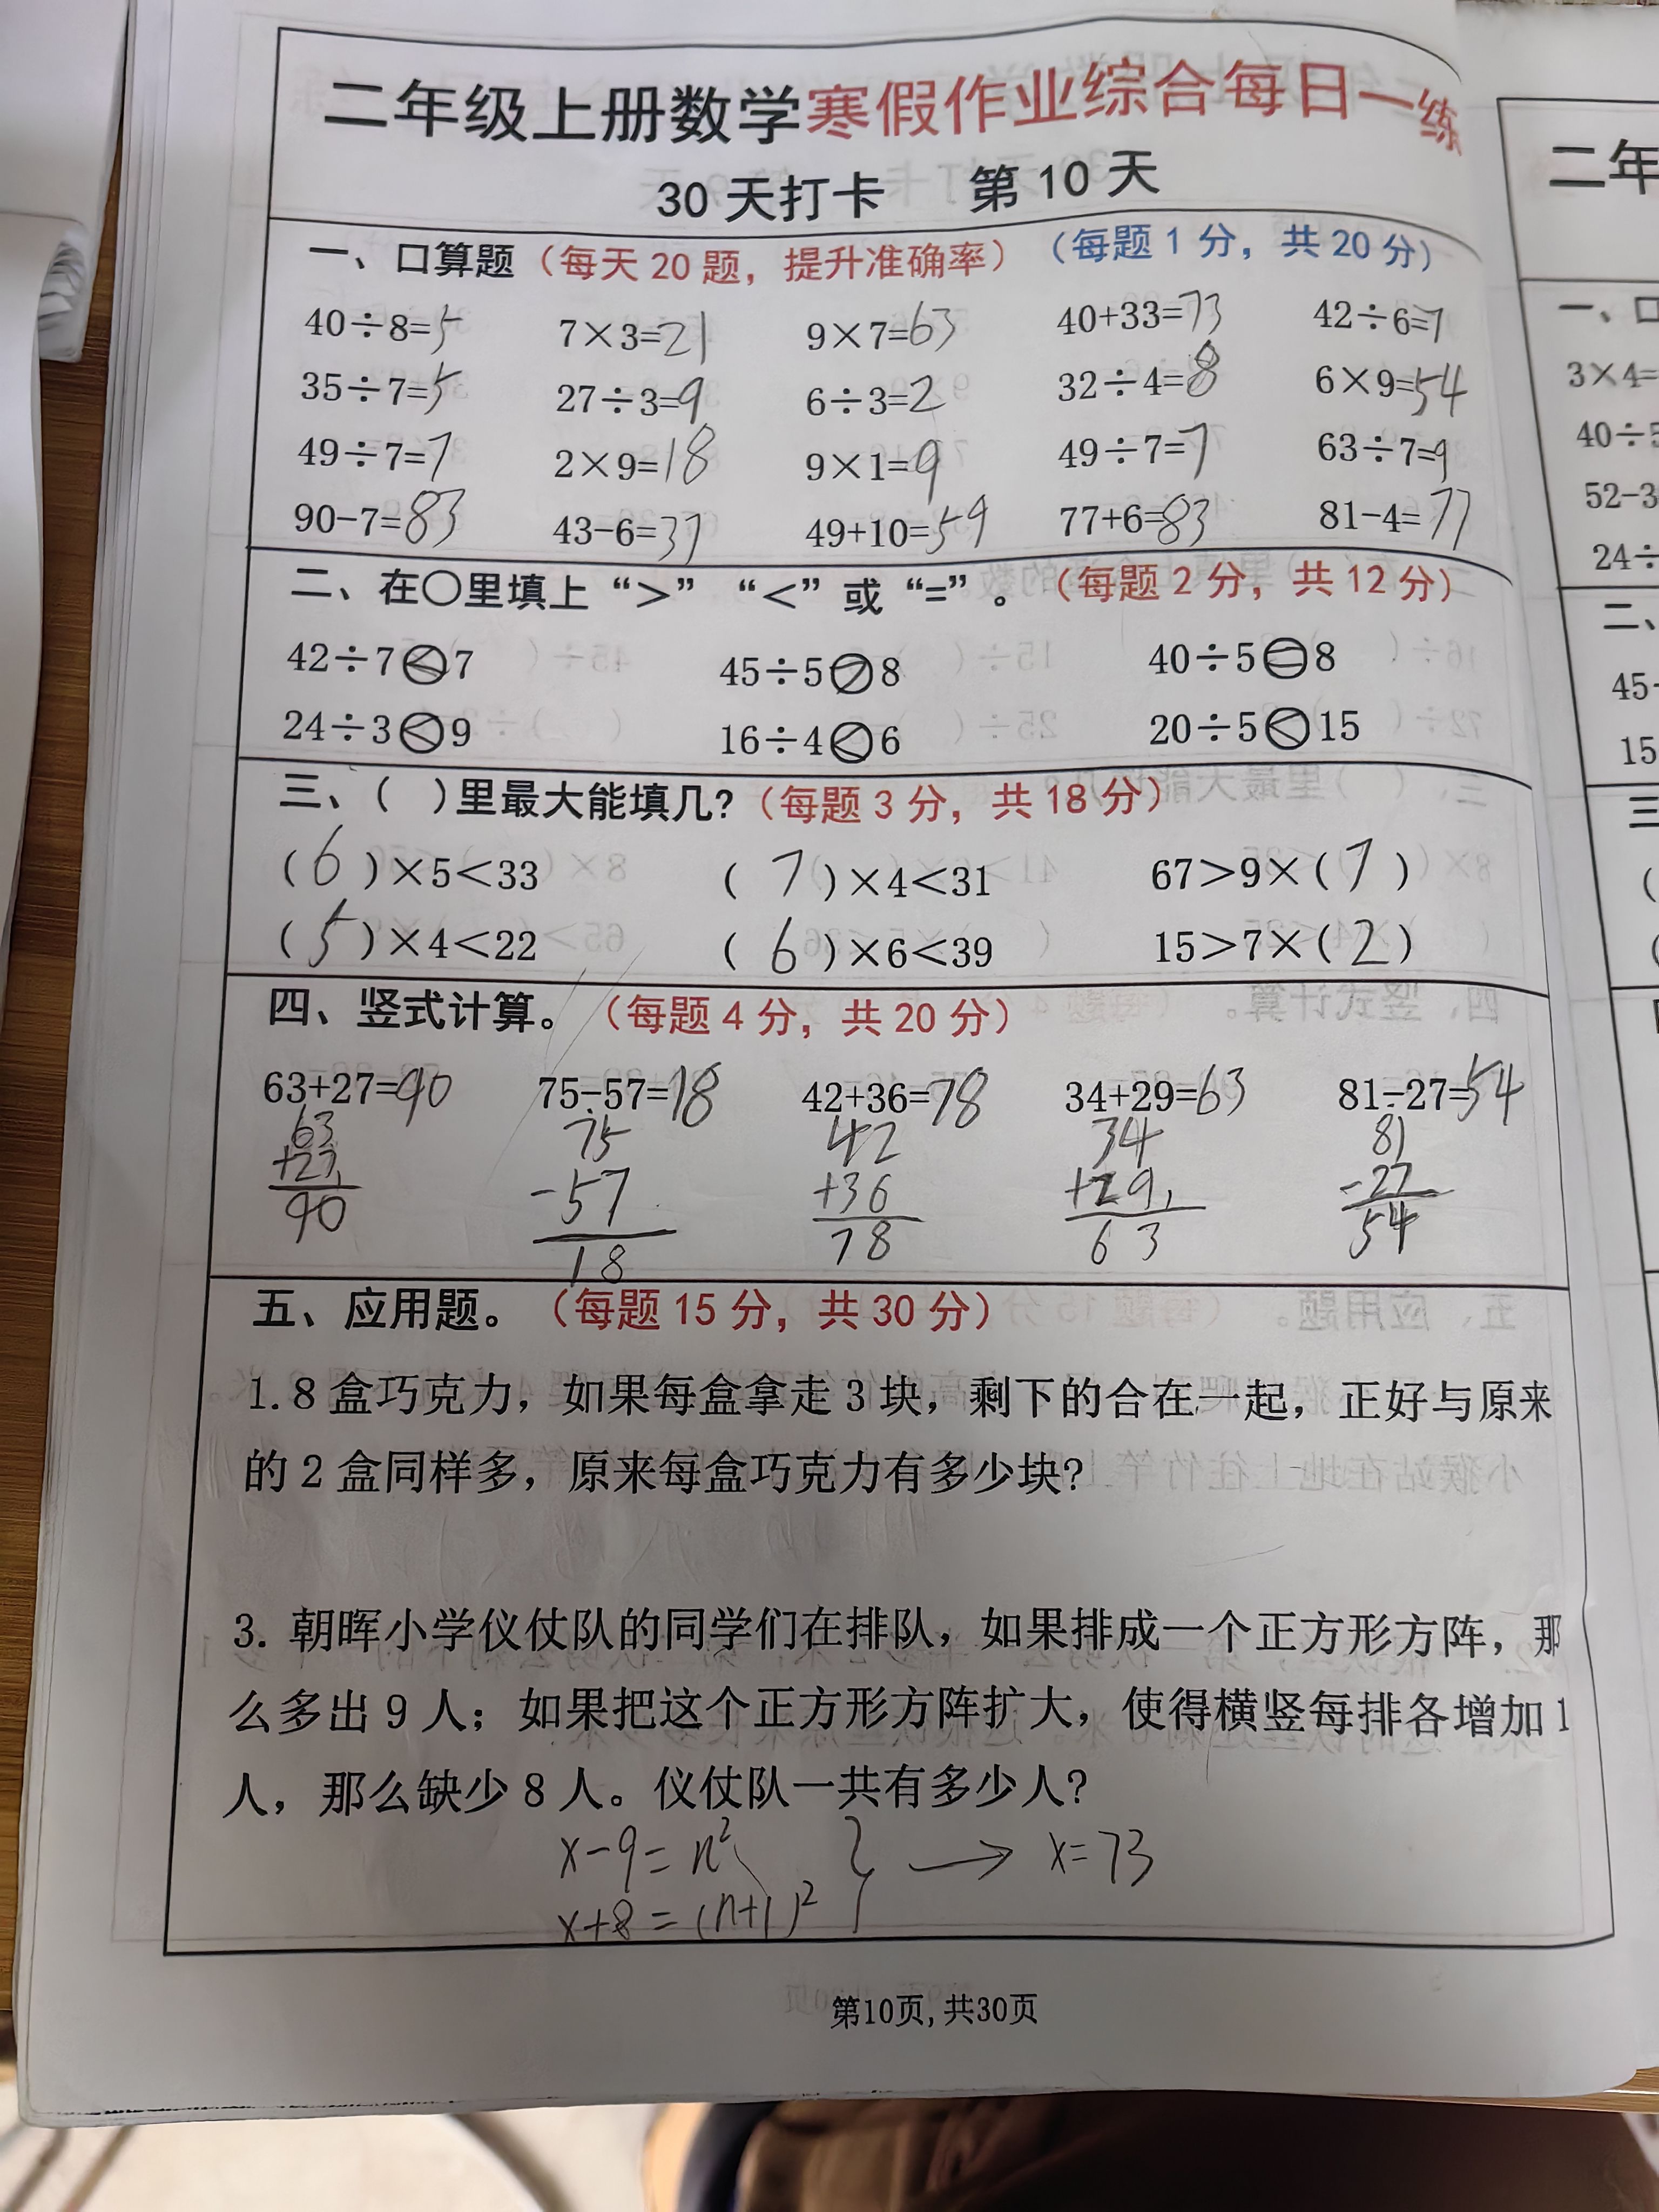 二年级上册数学寒假作业综合每日一练
30天打卡 第10天
一、口算题（每天20题，提升准确率）（每题1分，共20分）
40÷8=5 7×3=21 9×7=63 40+33=73 42÷6=7
35÷7=5 27÷3=9 6÷3=2 32÷4=8 6×9=54
49÷7=7 2×9=18 9×1=9 49÷7=7 63÷7=9
90-7=83 43-6=37 49+10=59 77+6=83 81-4=77
二、在○里填上“>”“<”或“=”。（每题2分，共12分）
42÷7<7 45÷5>8 40÷5=8
24÷3<9 16÷4<6 20÷5<15
三、( )里最大能填几?（每题3分，共18分）
(6)×5<33 (7)×4<31 67>9×(7)
(5)×4<22 (6)×6<39 15>7×(2)
四、竖式计算。（每题4分，共20分）
63+27=90 75-57=18 42+36=78 34+29=63 81-27=54
63 75 42 34 81
+27 -57 +36 +29 -27
90 18 78 63 54
五、应用题。（每题15分，共30分）
1. 8盒巧克力，如果每盒拿走3块，剩下的合在一起，正好与原来
的2盒同样多，原来每盒巧克力有多少块?
3. 朝晖小学仪仗队的同学们在排队，如果排成一个正方形方阵，那
么多出9人；如果把这个正方形方阵扩大，使得横竖每排各增加1
人，那么缺少8人。仪仗队一共有多少人?
x-9=n² } → x=73
x+8=(n+1)²
第10页,共30页
二年
一、口
3×4=
40÷5
52-3
24÷
二、
45
15
三